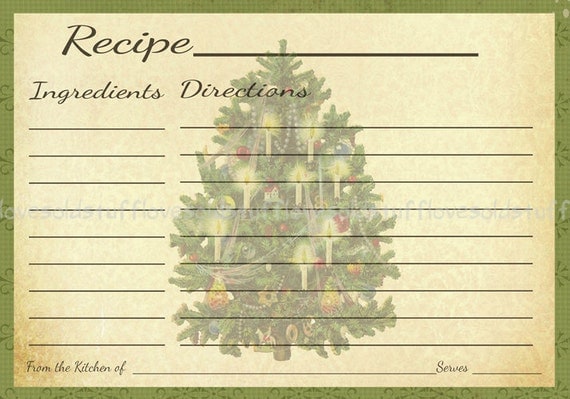 Recipe
Ingredients Directions
lovesoldstufflovesoldstufflovesoldstuff
From the Kitchen of Serves